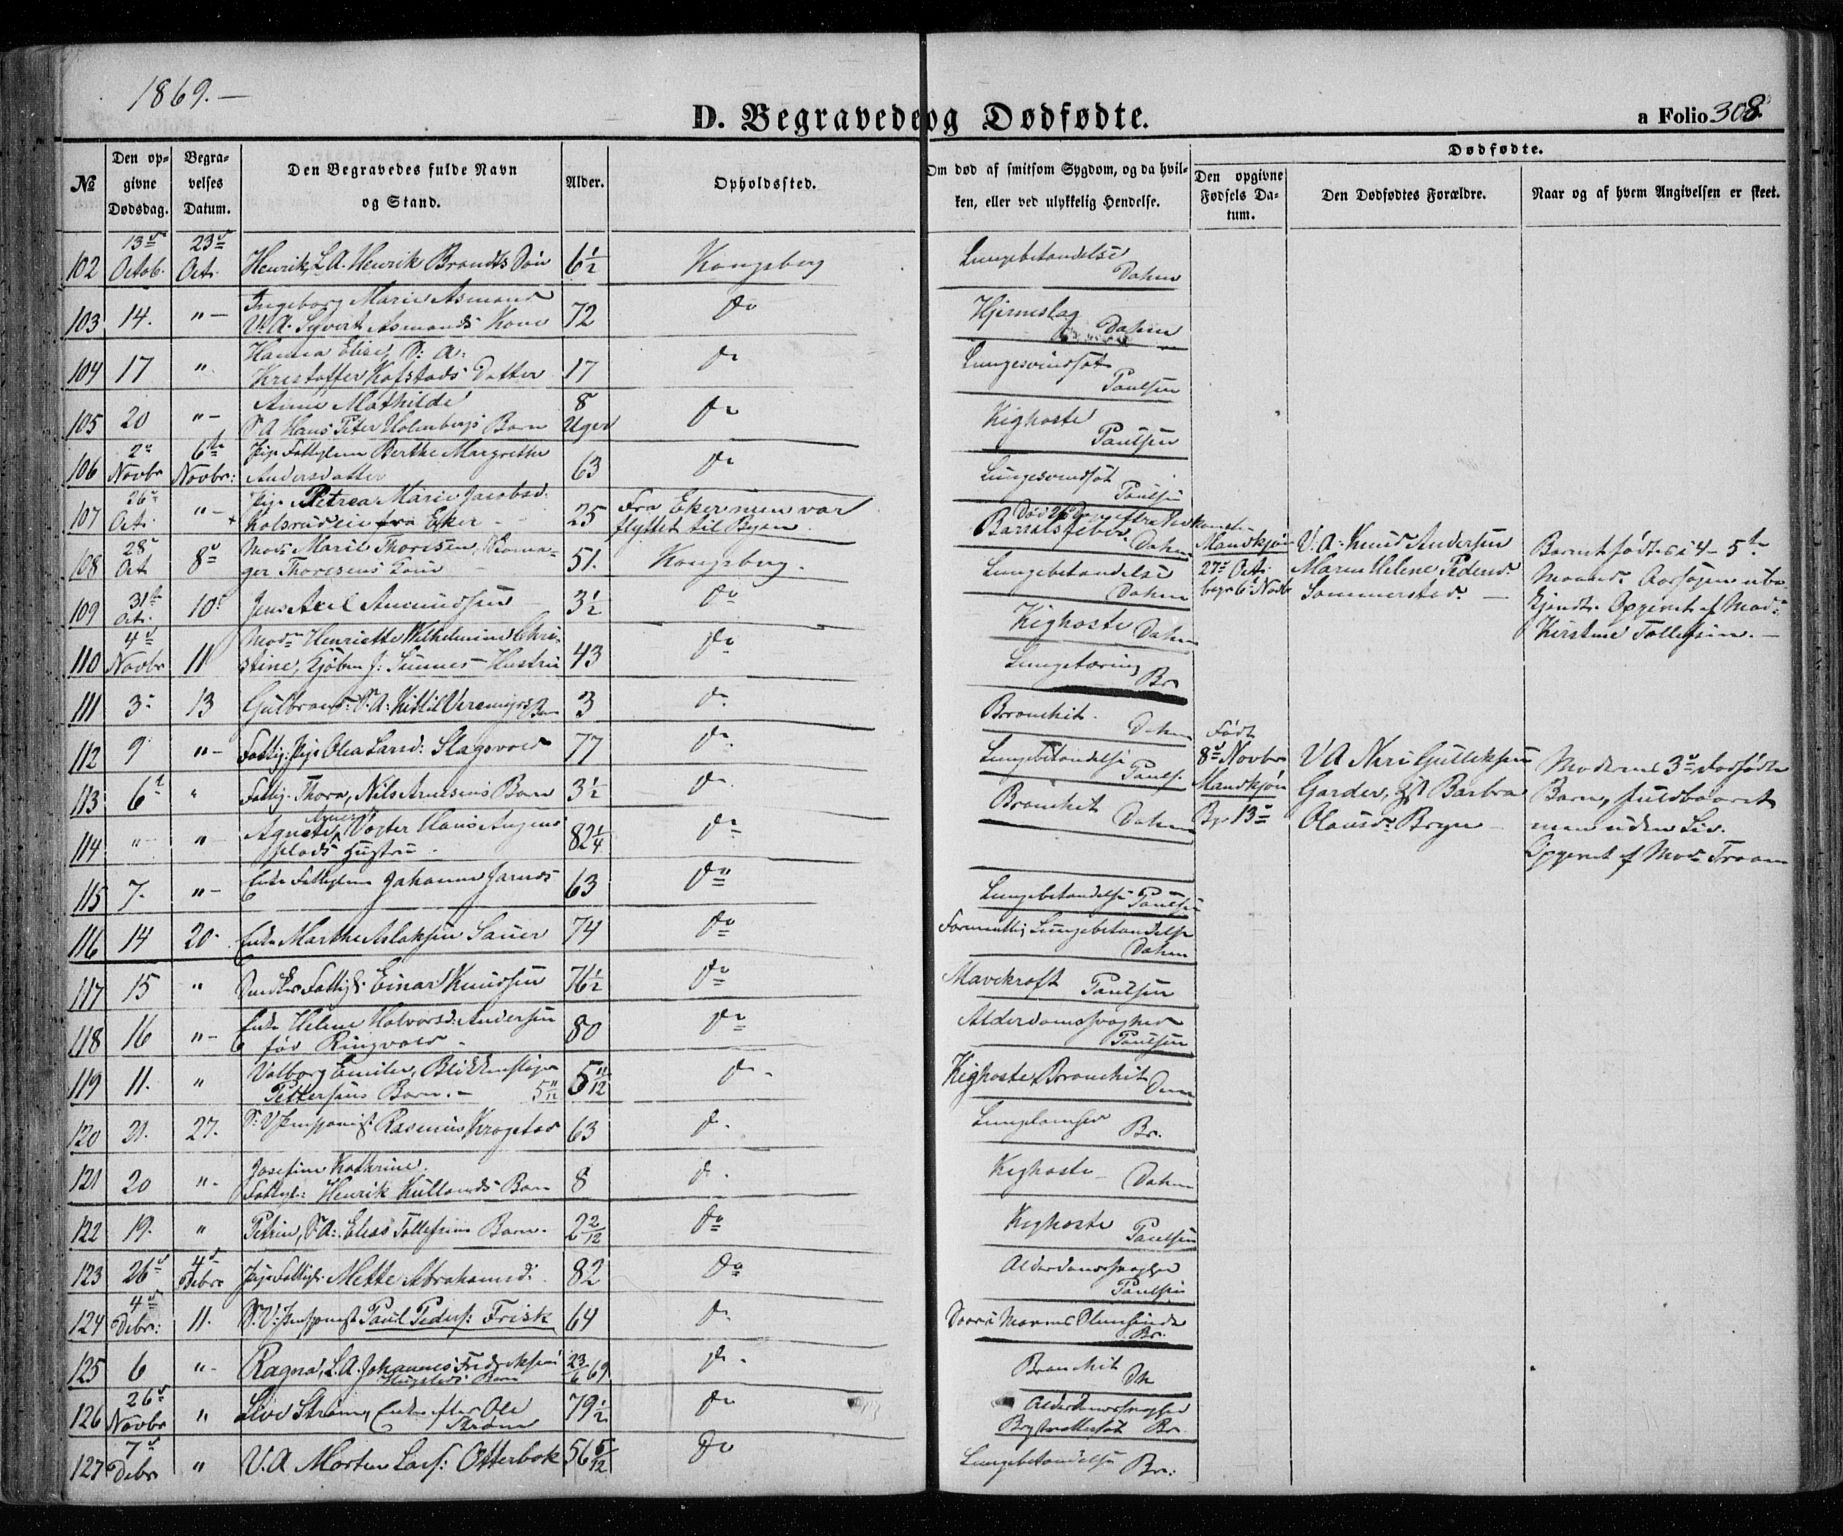 1869.—
D. Begravede og Dødfødte.
a Folio 308
Dødfødte.
№
Den opgivne Dødsdag.
Begravelses Datum.
Den Begravedes fulde Navn og Stand.
Alder.
Opholdssted.
Om død af smitsom Sygdom, og da hvilken, eller ved ulykkelig Hendelse.
Den opgivne Fødsels Datum.
Den Dødfødtes Forældre.
Naar og af hvem Angivelsen er skeet.
102 13de Octob. 23de Oct. Henrik, L.A. Henrik Brandts Søn 6½ Kongsberg Lungebetændelse Dahm
103 14. " — Ingeborg Marie Asmund V.A. Syvert Asmunds Kone 72 do Hjerneslag Dahm
104 17 " Hanna Elise, S: A: Kristoffer Kofstads Datter 17 do Lungesvindsot Paulsen
105 20 " — Anne Mathilde S A Hans Peter Holmbergs Barn 8 Uger do Kighoste Paulsen
106 2de Novbr 6te Novbr: Pige Fattiglem Berthe Margrethe Andersdatter 63 do Lungesvindsot Paulsen
107 26de Oct. " — Pige Petrea Marie Jacobsd. Kolsrudeie fra Eker 25 Fra Eker men var flyttet til Byen. Barselsfeber Dahm
108 28de Oct 8de Mad: Marie Thoresen, Thoresens Kone 51. Kongsberg. Lungebetændelse Dahm
109 31te Oct. 10de Jens Axel Amundsen 3½ do Kighoste Dahm
110 4de Novbr 11 Mad: Henriette Wilhelmine Christine, Kjøbm J: Sunnes Hustru 43 do Lungetæring Br
111 3de 13 Gulbrand S. A. Kittil Barn 3 do Bronchit. Dahm
112 9 " — Fattig. Pige Olea Larsd: Slagsvold 77 do Lungebetændelse Paulsen
113 6te " Fattig. Thora, Nils Arnesens Barn 3½ do Bronchit Dahm
114 " " Agnete, Vogter Hans Hustru 82¼ do
115 7. " — Enke Fattiglem Johanne 63 do Lungebetændelse Paulsen
116 14 20 Enke Marthe Aslaksen Sauer 74 do Lungebetændelse Dahm
117 15 " Fattigl: Einar Knudsen 76½ do Mavekræft Paulsen
118 16 " — Enke Helene Halvorsd: Andersen før Ringvold 80 do Alderdomssvaghed Paulsen
119 11. " Valborg Emilie, Blikkenslager Pettersens Barn. 5 11/12 do Kighoste Bronchit Dm
120 21. 27. Rasmus Krogstad 63 do Br.
121 20 " Josefine Kathrine Fattigl: Henrik Kullands Barn 8 do Kighoste Dahm
122 19. " Petrine, S. A: Elias Tollefsens Barn. 2 2/12 do Kighoste Paulsen
123 26de 4de Debr Pige Fattigl: Mette Abrahamsd: 82 do Alderdomssvaghed Paulsen
124 4de Debr: 11. Paul Peders: Frisk 64 do Br.
125 6 " — Ragna, L.A. Johannes Fredriksens Barn 23/6 69 do Bronchit Dh
126 26de Novbr " Live Strøm, Enke efter Ole Strøm 79½ do Alderdomssvaghed Brystvattersot Br
127 7de Debr " V. A Morten Lars: Otterbek 56 5/12 do Lungebetændelse Br:
Mandkjøn 27de Oct. begr. 6te Novb V. A. Knud Andersen Maren Helene Pedersd. Sommerstad. Barnet født i 4—5te Maaned. Aarsagen ubekjendt. Opgivet af Mad: Kirstine Tollefsen. —
Født 8de Novbr Mandkjøn Bgr 13de V A Niri Gulliksen Garder, g Barbra Olausd. Bryn Moderens 3de dødfødte Barn, fuldbaaret men uden Liv. Opgivet af Mad: